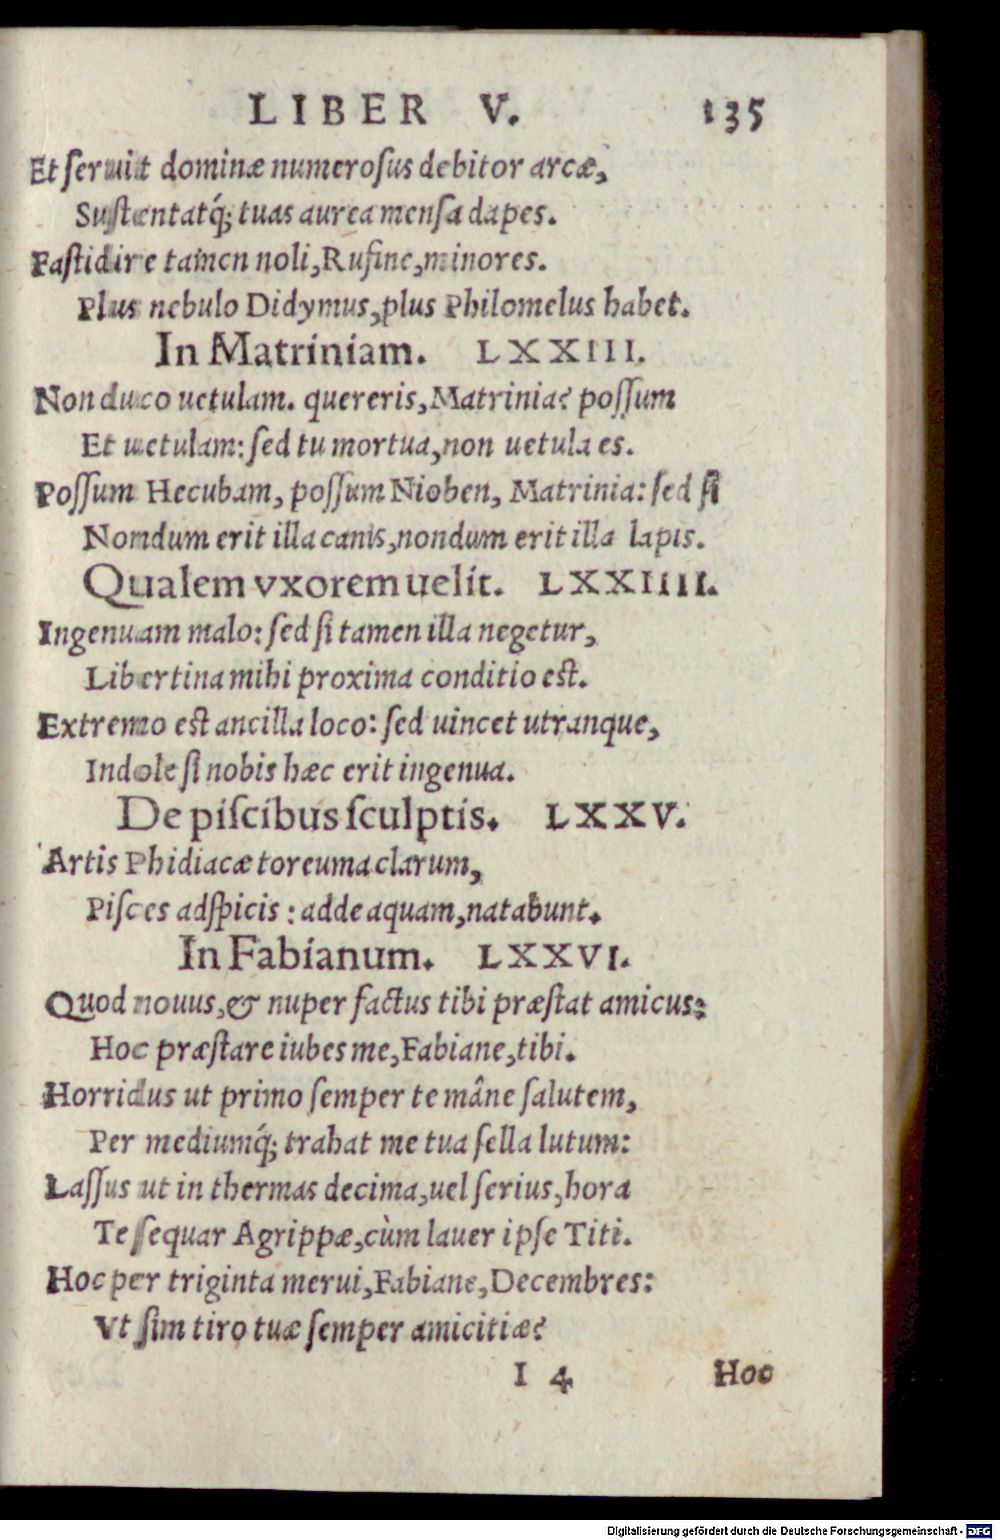 LIBER V. 135
Et seruit dominæ numerosus debitor arcæ,
Sustentatq́; tuas aurea mensa dapes.
Fastidire tamen noli, Rufine, minores.
Plus nebulo Didymus, plus Philomelus habet.
In Matriniam. LXXIII.
Non duco uetulam. quereris, Matrinia? possum
Et uetulam: sed tu mortua, non uetula es.
Possum Hecubam, possum Nioben, Matrinia: sed si
Nondum erit illa canis, nondum erit illa lapis.
Qualem vxorem uelit. LXXIIII.
Ingenuam malo: sed si tamen illa negetur,
Libertina mihi proxima conditio est.
Extremo est ancilla loco: sed uincet utranque,
Indole si nobis hæc erit ingenua.
De piscibus sculptis. LXXV.
Artis Phidiacæ toreuma clarum,
Pisces adspicis: adde aquam, natabunt.
In Fabianum. LXXVI.
Quod nouus, & nuper factus tibi præstat amicus:
Hoc præstare iubes me, Fabiane, tibi.
Horridus ut primo semper te mâne salutem,
Per mediumq́; trahat me tua sella lutum:
Lassus ut in thermas decima, uel serius, hora
Te sequar Agrippæ, cùm lauer ipse Titi.
Hoc per triginta merui, Fabiane, Decembres:
Vt sim tiro tuæ semper amicitiæ?
I 4 Hoc
Digitalisierung gefördert durch die Deutsche Forschungsgemeinschaft - DFG